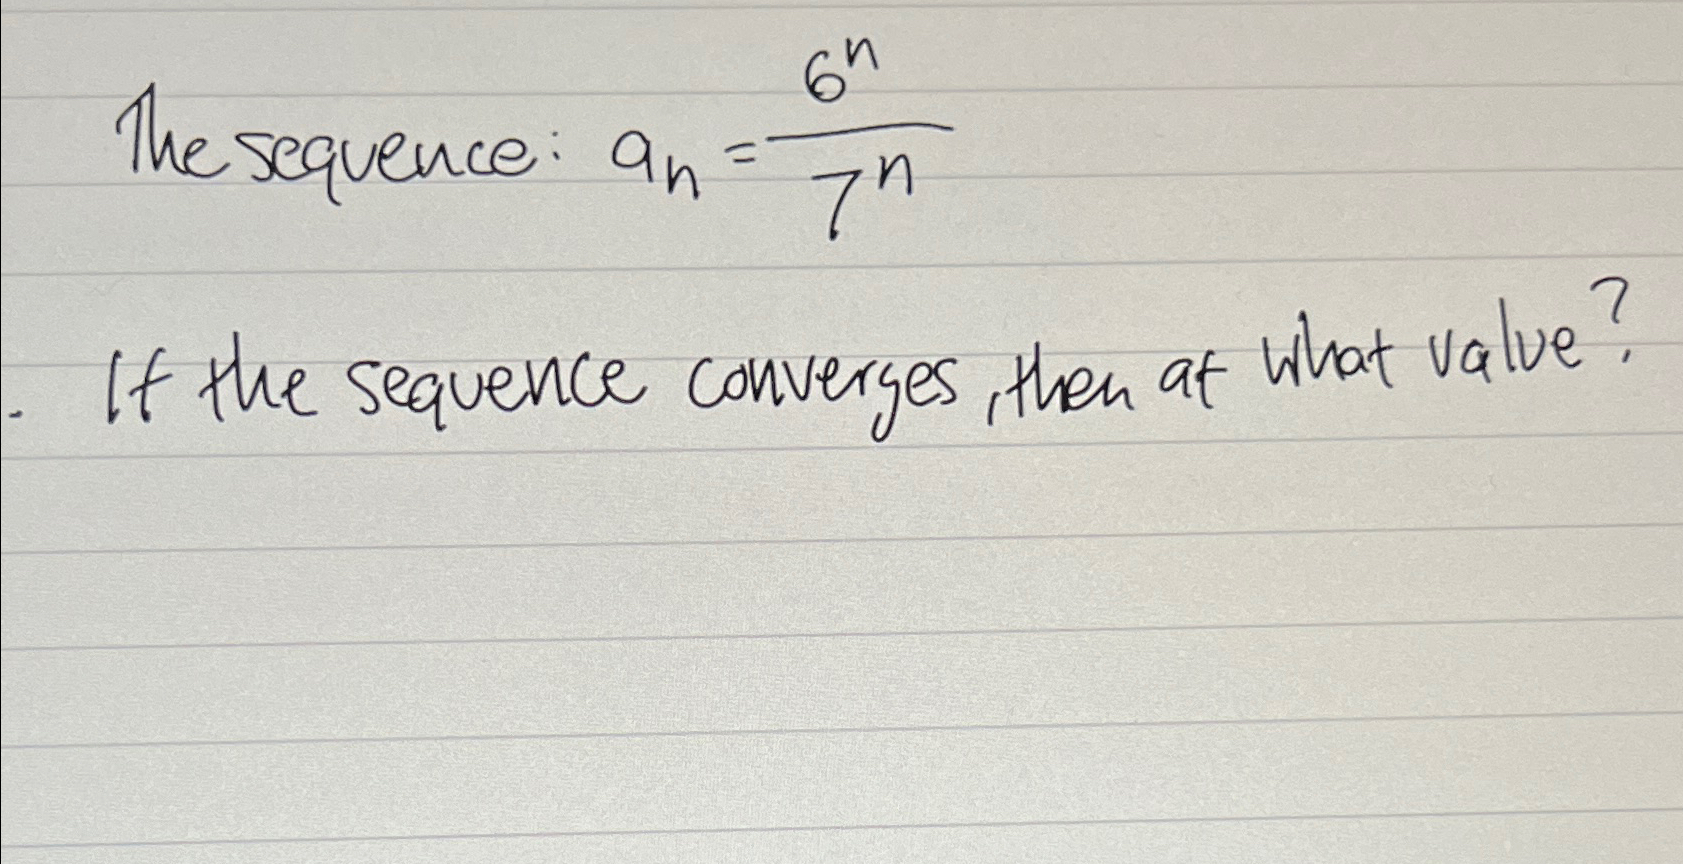 The sequence: aₙ = 6ⁿ/7ⁿ
. If the sequence converges, then at what value?